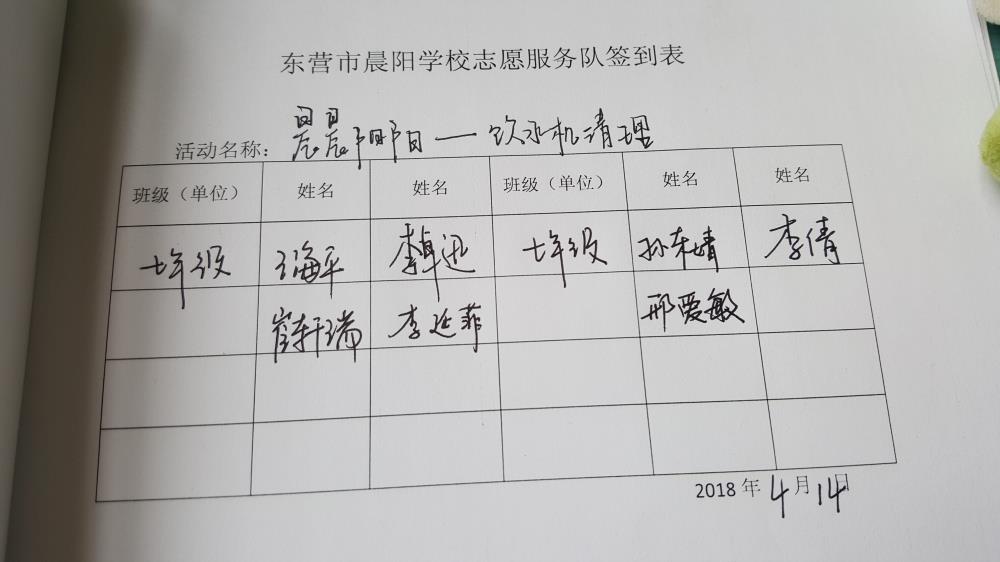 东营市晨阳学校志愿服务队签到表
活动名称：晨晨阳阳一饮水机清理
班级（单位） 姓名 姓名 班级（单位） 姓名 姓名
七年级 王海平 李卓迅 七年级 孙东婧 李倩
崔轩瑞 李延菲 邢爱敏
2018年4月14日